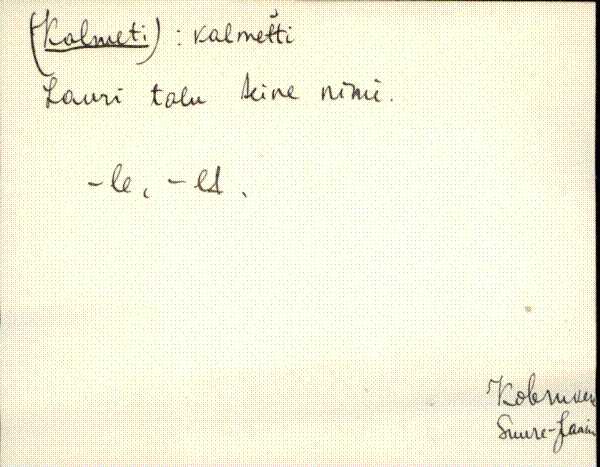 (Kalmeti) : kalmetti
Lauri talu teine nimi.
-le, -lt.
Kobruvere
Suure-Jaani